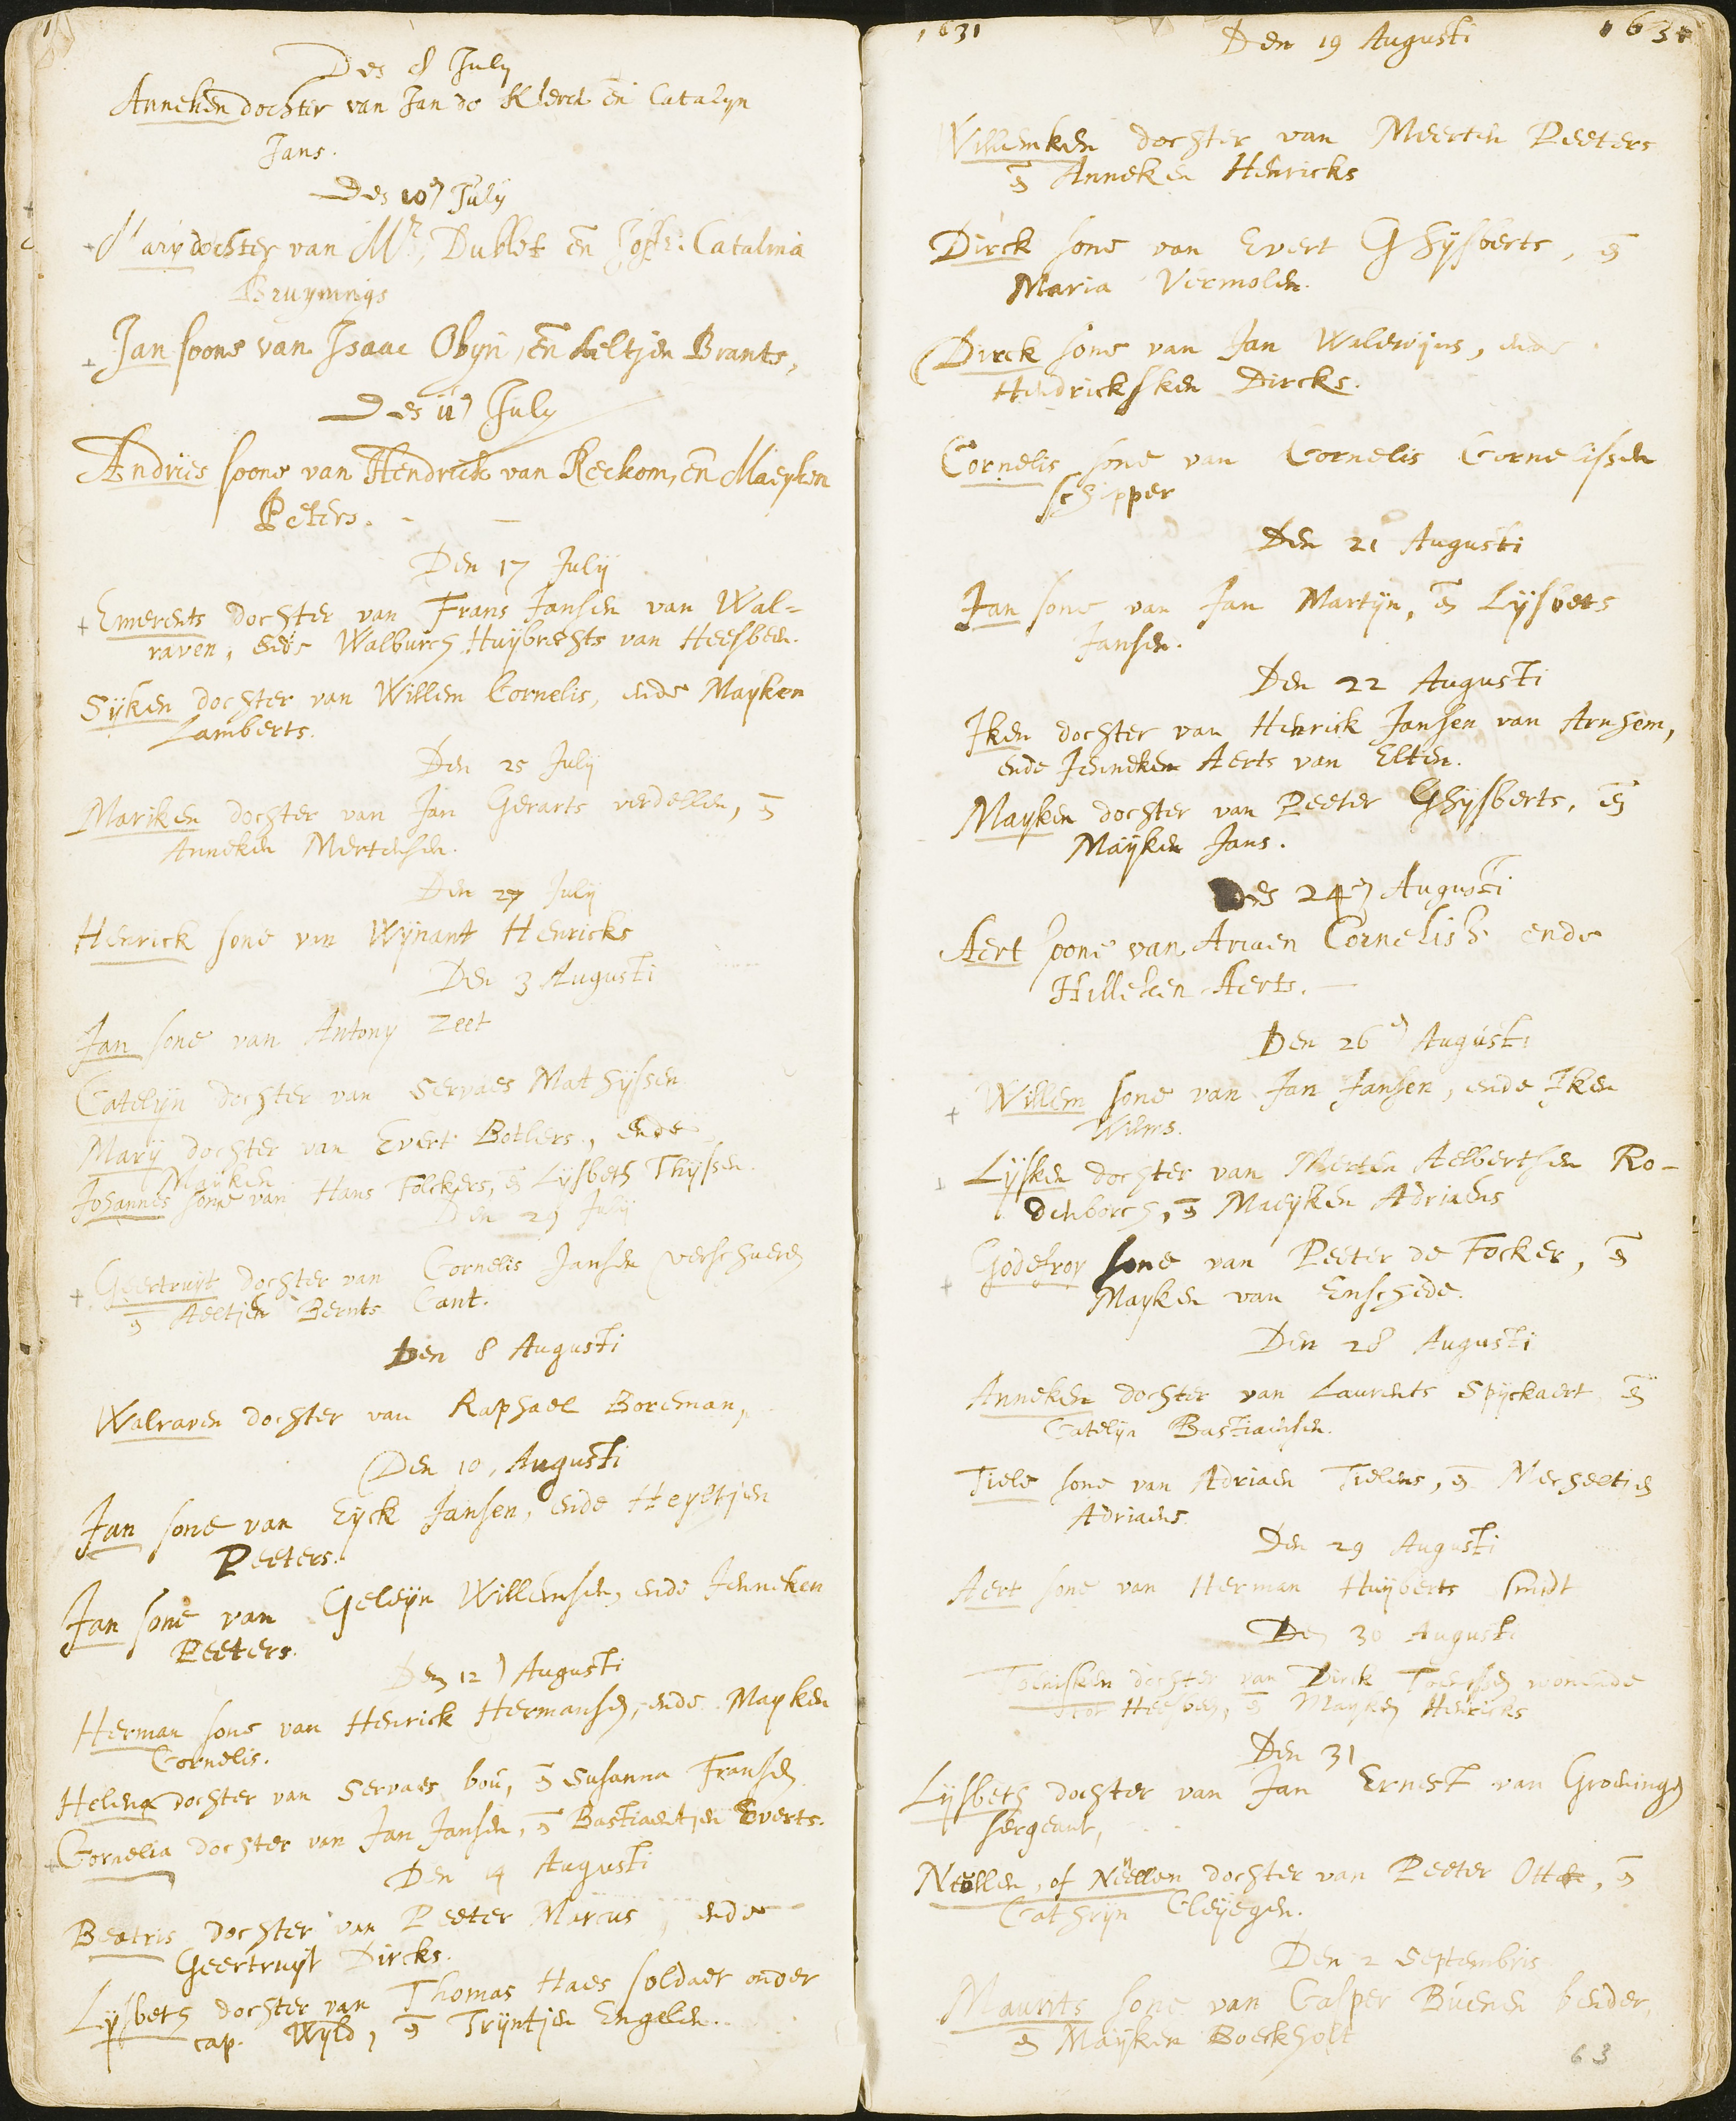 Des 8 July
Anneken dochter van Jan de Klerck en Catalyn
Jans.
Des 10 July
Mary dochter van Mr. Dublet en Joffr: Catalina
Bruynings
Jan soone van Isaac Obyn, en Aeltjen Brants,
Des 11 July
Andries soone van Hendrick van Reckom, en Maeyken
Peters.
Den 17 Julij
Emerents dochter van Frans Jansen van Wal-
raven, ende Walburch Huijbrechts van Heesbeen.
Sijken dochter van Willem Cornelis, ende Mayken
Lamberts.
Den 25 Julij
Mariken dochter van Jan Gerarts verdellen, en
Anneken Mertensen.
Den 27 Julij
Henrick sone van Wijnant Henricks
Den 3 Augusti
Jan sone van Antony Zeet
Catelijn dochter van Servaes Mathijssen
Marij dochter van Evert Botlers, ende
Mayken
Johannes sone van Hans Folckers, en Lijsbeth Thijssen.
Den 29 Julij
Geertruijt dochter van Cornelis Jansen verschueren
en Aeltjen Bernts Cant.
Den 8 Augusti
Walraven dochter van Raphael Boreman,
Den 10, Augusti
Jan sone van Eijck Jansen, ende Heyltjen
Peeters.
Jan sone van Geleijn Willemsen, ende Jenneken
Peeters.
Den 12 Augusti
Herman sone van Henrick Hermansen, ende Mayken
Cornelis.
Helena dochter van Servaes bou, en Susanna Fransen
Cornelia dochter van Jan Jansen, en Bastiaentjen Everts.
Den 14 Augusti
Beatris dochter van Peeter Marcus, ende
Geertruijt Dircks.
Lijsbeth dochter van Thomas Haes soldaet onder
cap. Wyld, en Trijntjen Engelen.
1631
Den 19 Augusti
1631
Willemken dochter van Meerten Peeters
en Anneken Henricks
Dirck sone van Evert Ghijsberts, en
Maria Vermolen.
Dirck sone van Jan Walewijns, ende
Hendricksken Dircks.
Cornelis sone van Cornelis Cornelissen
schipper
Den 21 Augusti
Jan sone van Jan Martijn, en Lijsbets
Jansen.
Den 22 Augusti
Iken dochter van Henrick Jansen van Arnhem,
ende Jenneken Aerts van Elten.
Mayken dochter van Peeter Ghijsberts, en
Maijken Jans.
Des 24 Augusti
Aert soone van Ariaen Cornelisz ende
Hilleken Aerts.
Den 26 Augusti
Willem sone van Jan Jansen, ende Iken
Wilms.
Lijsken dochter van Merten Aelbertsen Ro-
denborch, en Maeyken Adriaens
Godefroy sone van Peeter de Focker, en
Mayken van Enschede.
Den 28 Augusti
Anneken dochter van Laurents Spijckaert, en
Catelijn Bastiaensen.
Tiele sone van Adriaen Tielens, en Mecheltien
Adriaens
Den 29 Augusti
Aert sone van Herman Huijberts smidt
Den 30 Augusti
Toenisken dochter van Dirck Toenissen wonende
tot Heesben, en Mayken Henricks
Den 31
Lijsbeth dochter van Jan Ernest van Groeningen
sergeant,
Neellen, of Neellen dochter van Peeter Otte, en
Cathrijn Cleijegen.
Den 2 Septembris
Maurits sone van Casper Buenen bender,
en Mayken Boeckholt
63